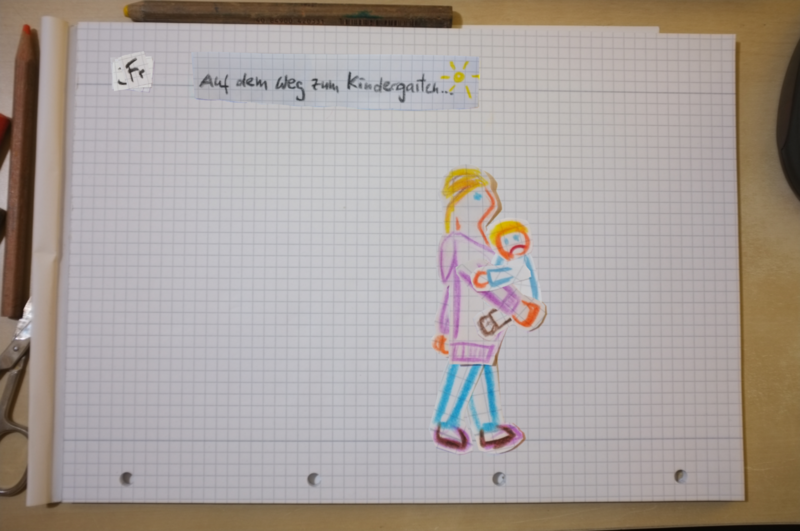 :Fr
Auf dem Weg zum Kindergarten...